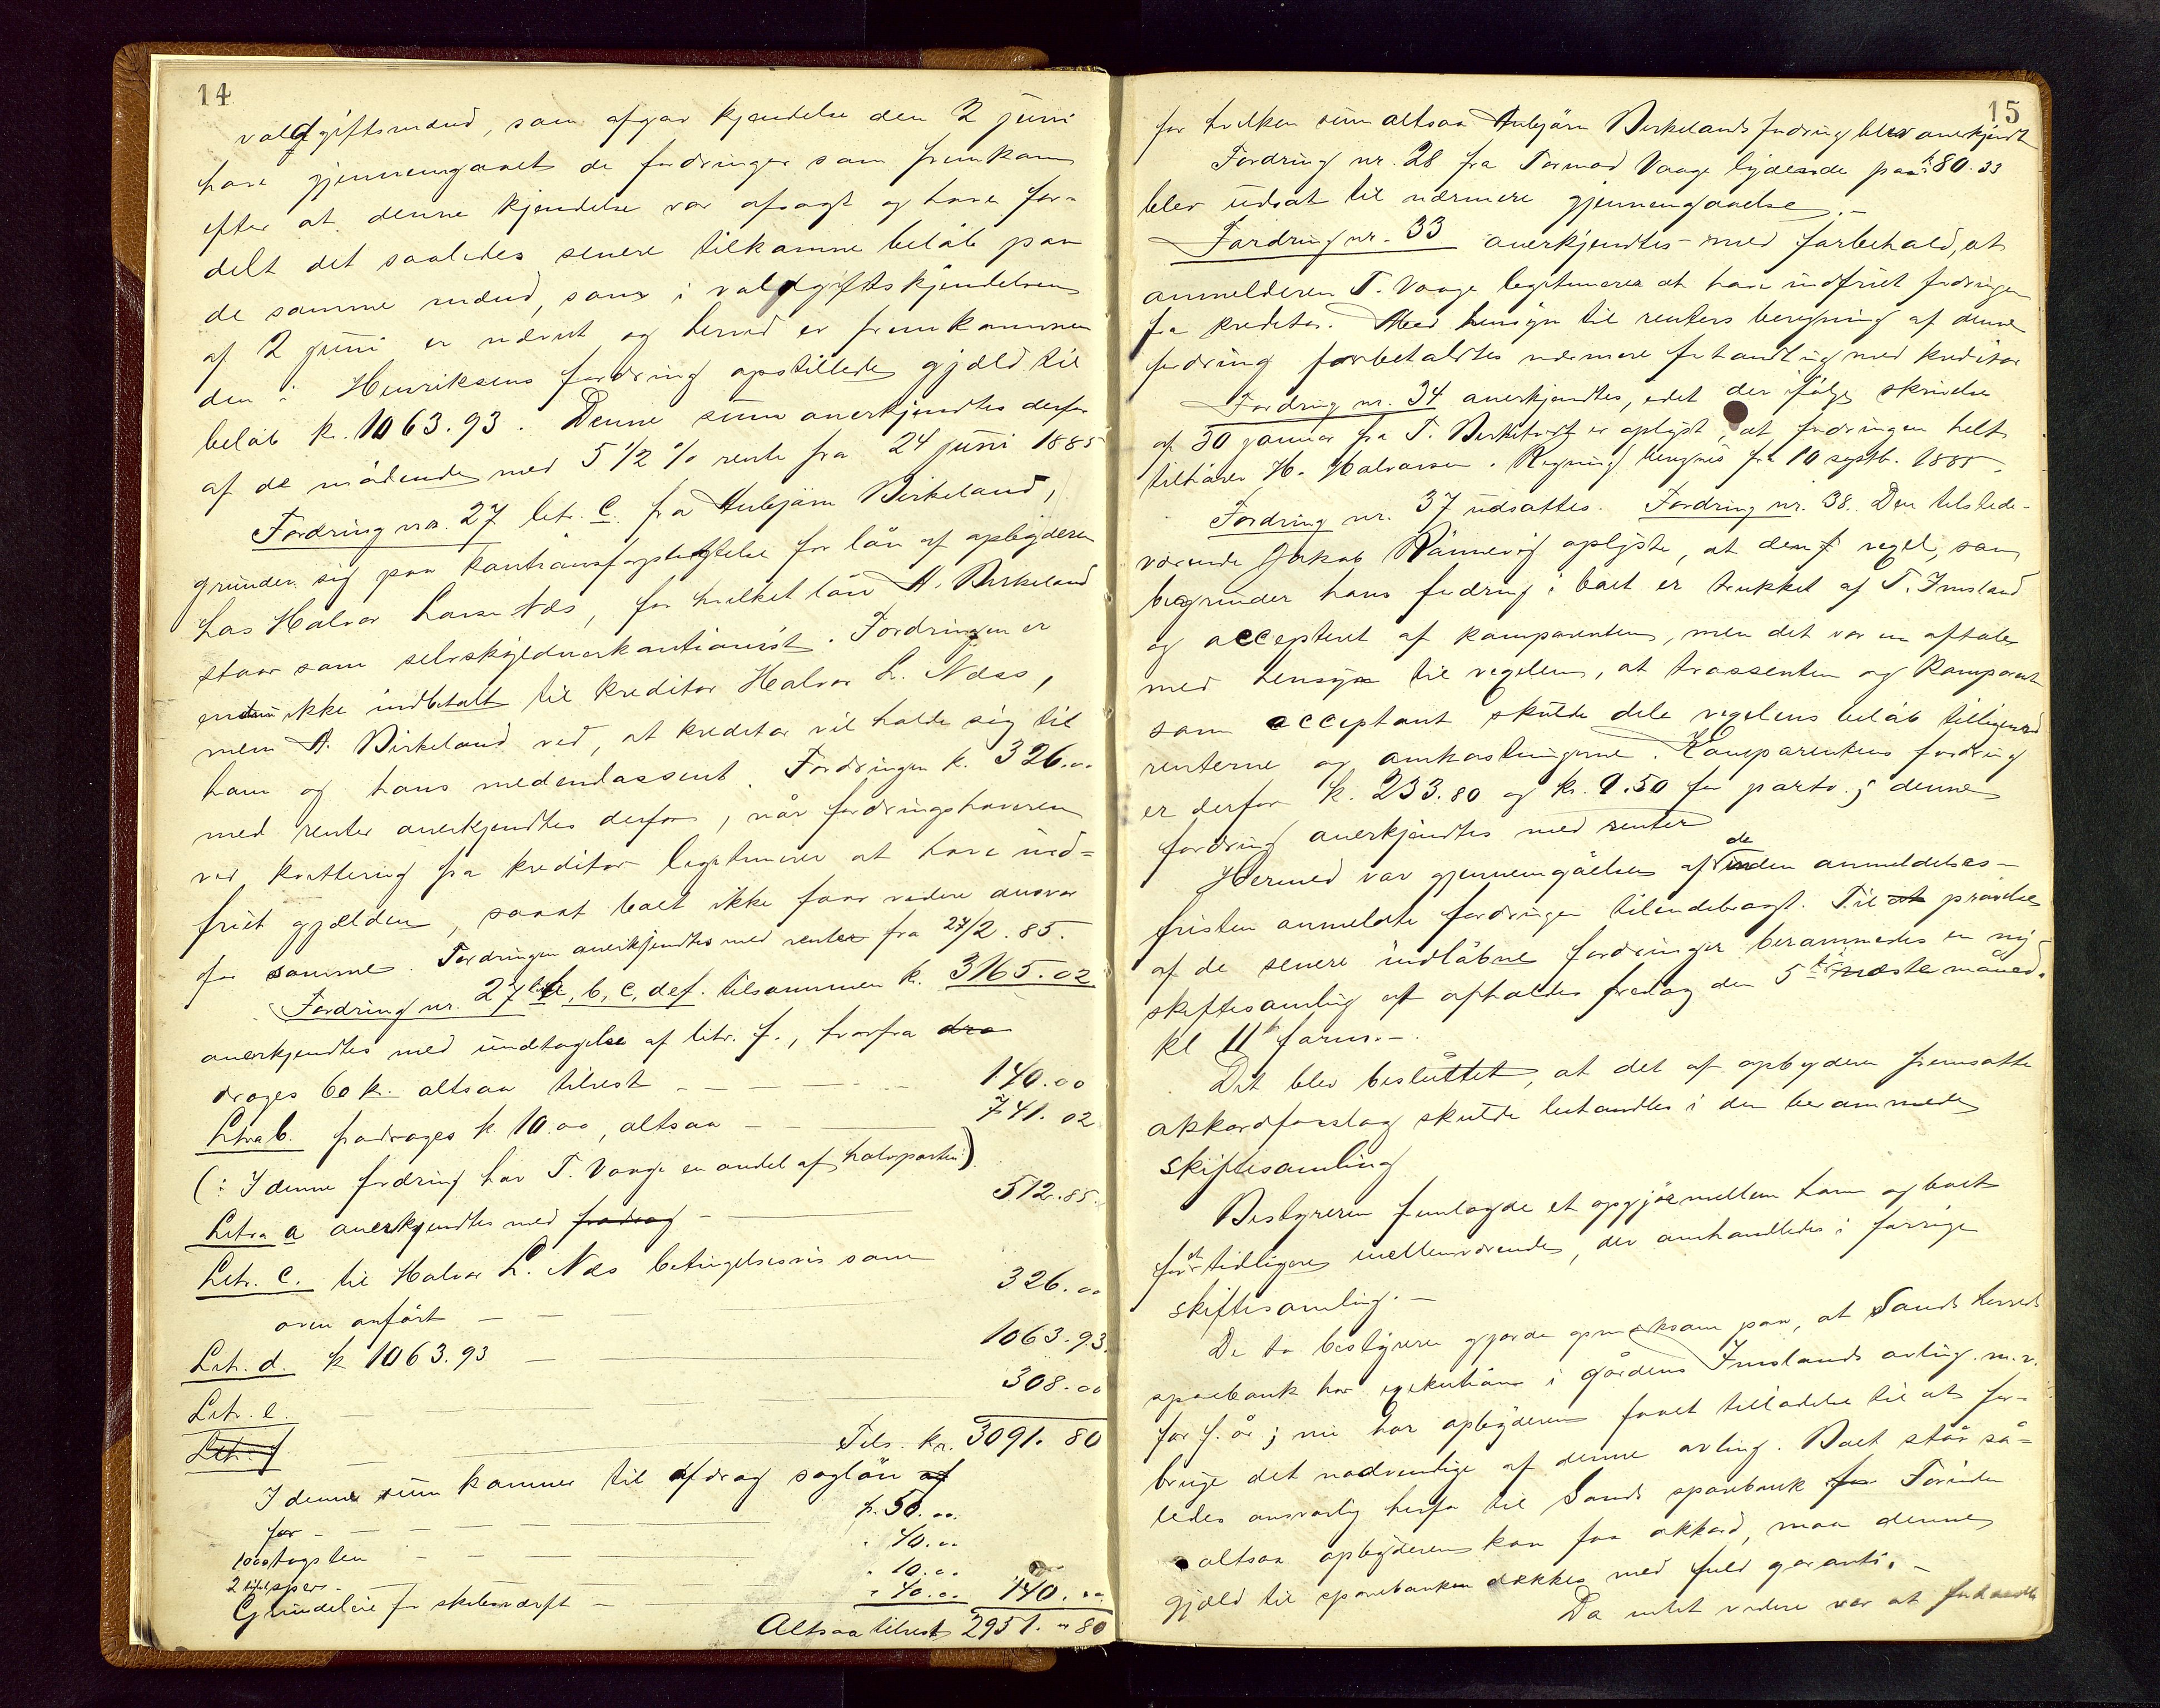 14
voldgiftsmænd, som afgav kjendelse den 2 juni
have gjennemgaaet de fordringer som fremkom
efter at denne kjendelse var afsagt og have for-
delt det saaledes senere tilkomne beløb paa
de samme mænd, som i voldgiftskjendelsen
af 2 juni er nævnt og herved er fremkommen
den i Henriksens fordring opstillede gjæld til
beløb k. 1063.93. Denne sum anerkjendtes derfor
af de mødende med 5 1/2 % rente fra 24 juni 1885
Fordring no. 27 litr. c. fra Asbjørn Birkeland,
grunder sig paa kautionsforpligtelse for lån af opbyderen
hos Halvor Larsen Næs, for hvilket lån A. Birkeland
staar som selvskyldnerkautionist. Fordringen er
endnu ikke indbetalt til kreditor Halvor L. Næss,
men A. Birkeland ved, at kreditor vil holde sig til
ham og hans medendossent. Fordringen k. 326.00
med renter anerkjendtes derfor, når fordringshaveren
ved kvittering fra kreditor legitimerer at have ind-
friet gjælden, saaat boet ikke faar videre ansvar
for samme. Fordringen anerkjendtes med renter fra 27/2. 85.
Fordring nr. 27 litr. a, b, c, d e f. tilsammen k. 3165.02
anerkjendtes med undtagelse af litr. f., hvorfra dra
drages 60 k. altsaa tilrest — 140.00
Litra b. fradrages k. 10.00, altsaa — 741.02
(: I denne fordring har T. Vaage en andel af halvparten)
Litra a anerkjendtes med fradrag — 512.85.
Litr. c. til Halvor L. Næs betingelsesvis som
oven anført — 326.00
Litr. d. k 1063.93 — 1063.93.
Litr. e. — 308.00
Litr. f — Tils. kr. 3091.80
I denne sum kommer til afdrag saglön af
for — k. 50.00.
1000 tagsten — " 10.00
2 — " 10.00
Grundeleie for skibsværft — " 40.00 140.00
Altsaa tilrest 2951.80
15
for hvilken sum altsaa Asbjørn Birkelands fordring blev anerkjendt
Fordring nr. 28 fra Tormod Vaage lydende paa k 80.33
blev udsat til nærmere gjennemgaaelse.-
Fordring nr. 33 anerkjendtes med forbehold, at
anmelderen T. Vaage legitimerer at have indfriet fordringen
fra kreditor. Med hensyn til renters beregning af denne
fordring forbeholdtes nærmere forhandling med kreditor
Fordring nr. 34 anerkjendtes, idet der ifølge skrivelse
af 30 januar fra T. er oplyst, at fordringen helt
tilhører H. Halvorsen. Regning beregnes fra 10 septb. 1885.
Fordring nr. 37 udsattes. Fordring nr. 38. Den tilstede-
værende Jakob Rånnevig oplyste, at den vexel, som
begrunder hans fordring i boet er trukket af T. Imsland
og accepteret af komparenten, men det var en aftale
med hensyn til vexelen, at trassenten og komparent
som acceptant skulde dele vexelens beløb tilligemed
renterne og omkostningerne. Komparentens fordring
er derfor k. 233.80 og kr. 9.50 for porto.; denne
fordring anerkjendtes med renter
Hermed var gjennemgåelsen af de inden anmeldelses-
fristen anmeldte fordringer tilendebragt. Til at prøvelse
af de senere indløbne fordringer berammedes en ny
skiftesamling at afholdes fredag den 5te næste måned.
kl 11 form.-
Det blev besluttet, at det af opbyderen fremsatte
akkordforslag skulde behandles i den berammede
skiftesamling
Bestyreren fremlagde et opgjør mellem ham og boet
for et tidligere mellemværende, der omhandledes i forrige
skiftesamling.-
De to bestyrere gjorde opmerksom paa, at Sands herreds
sparebank har exekution i gårdens Imslands avling m.v.
for f. år; nu har opbyderen faaet tilladelse til at for-
bruge det nødvendige af denne avling. Boet står så-
ledes ansvarlig herfor til Sands sparebank for Forinden
altsaa opbyderen kan faa akkord, maa denne
gjæld til sparebanken dækkes med fuld garanti.-
Da intet videre var at forhandle